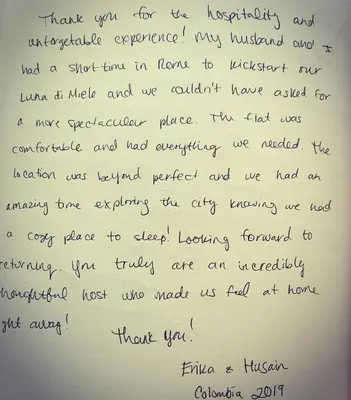 Thank you for the hospitality and
unforgetable experience! My husband and I
had a short time in Rome to kickstart our
Luna di Miele and we couldn't have asked for
a more spectacular place. The flat was
comfortable and had everything we needed. The
location was beyond perfect and we had an
amazing time exploring the city knowing we had
a cozy place to sleep! Looking forward to
returning. You truly are an incredibly
thoughtful host who made us feel at home
ght away!
Thank you!
Erika & Husain
Colombia 2019